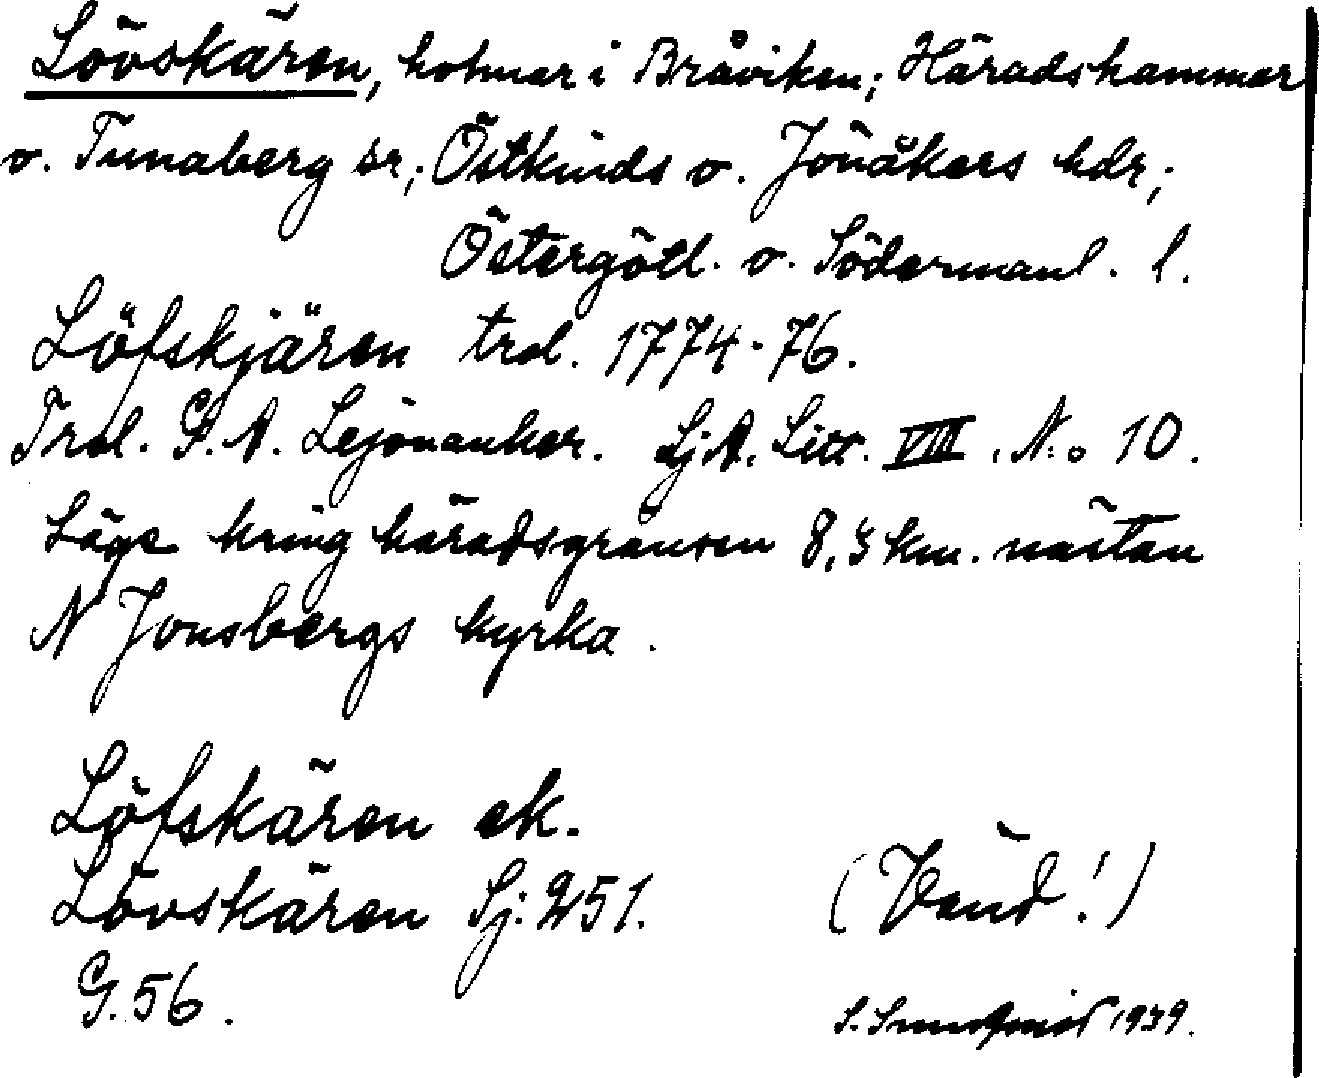 Lövskären, holmar i Bråviken; Häradshammar
o. Tunaberg sr; Östkinds o. Jönåkers hdr;
Östergötl. o. Södermanl. l.
Löfskjären trol. 1774-76.
Trol. G. A. Lejonanker. Lj.A. Litt. VIII. N:o 10.
Läge kring häradsgränsen 8,3 km. nästan
N Jonsbergs kyrka.
Löfskären ek.
Lövskären Sj. 251.
(Vänd!)
G. 56.
S. 1939.